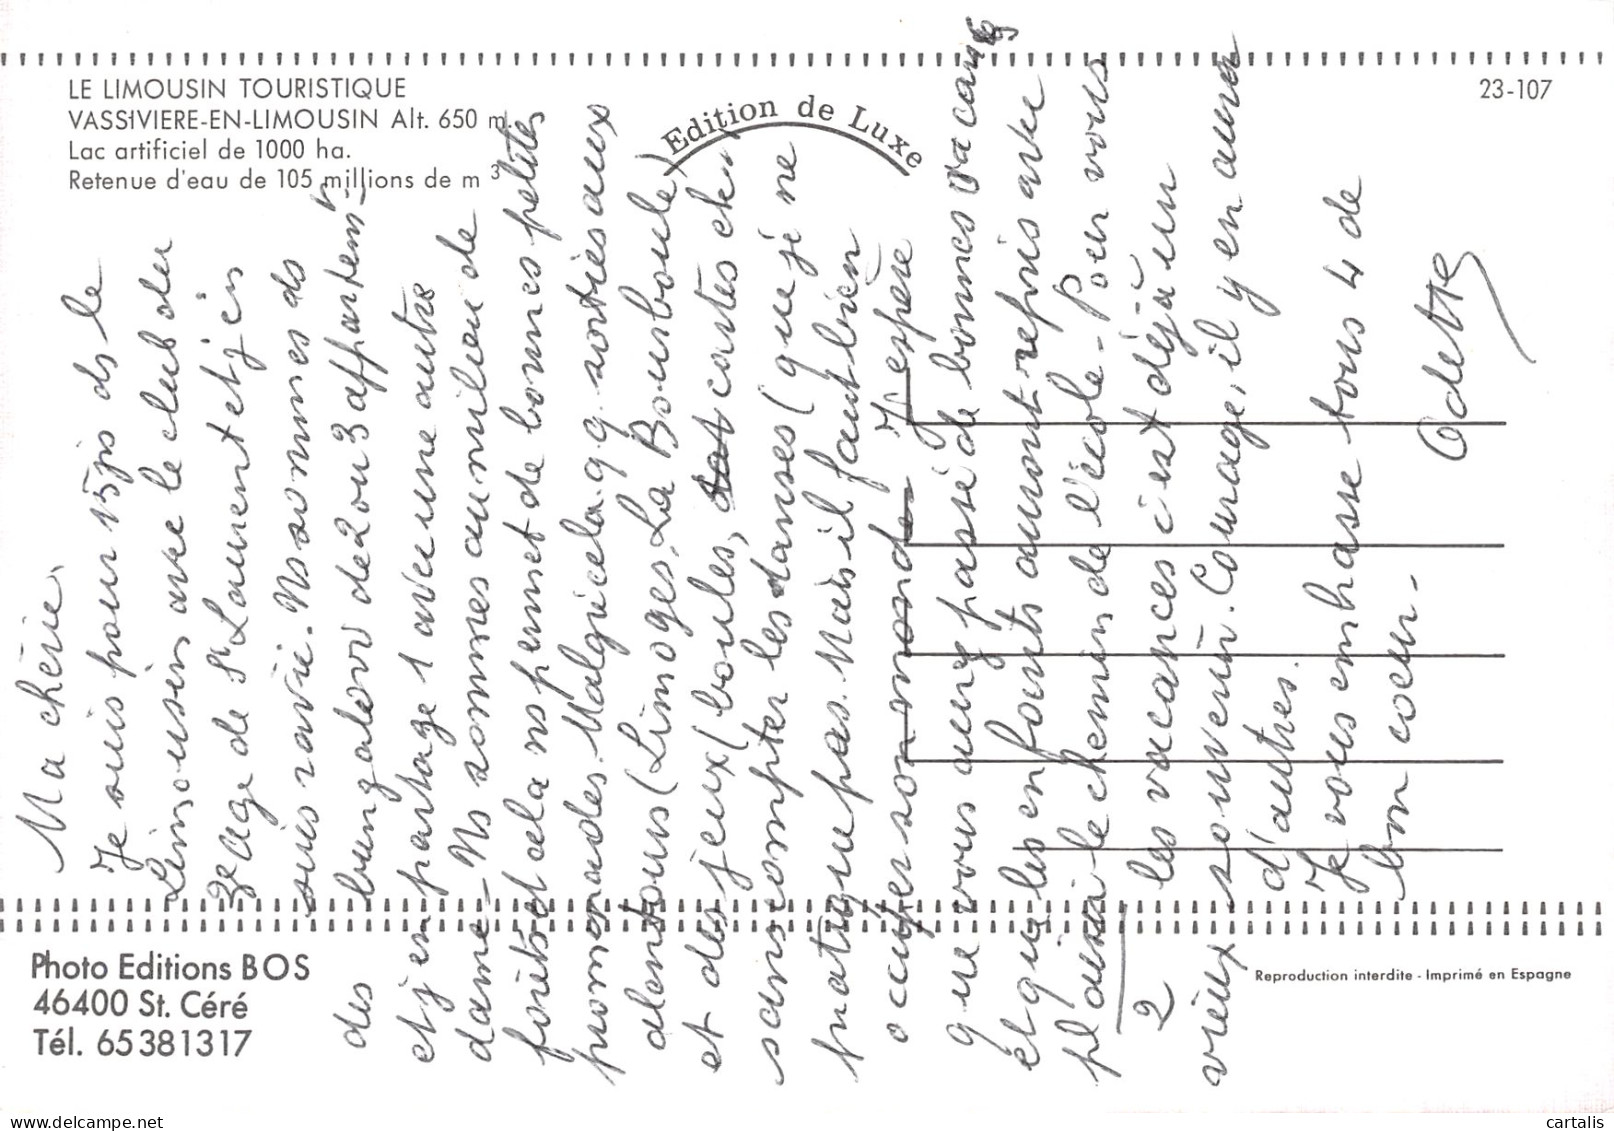 LE LIMOUSIN TOURISTIQUE
VASSIVIERE-EN-LIMOUSIN Alt. 650 m.
Lac artificiel de 1000 ha.
Retenue d'eau de 105 millions de m³
Edition de Luxe
23-107
Ma chérie,
Je suis pour 15 js ds le
Limousin avec le club du
3e age de St Laurent et j'en
suis ravie. Ns sommes ds
des bungalow de 2 ou 3 appartemts
et j'en partage 1 avec une autre
dame - Ns sommes au milieu de
forêts et cela ns permet de bonnes petites
promenades. Malgré cela qq sorties aux
alentours (Limoges, La Bourboule)
et des jeux (boules, cartes etc..
sans compter les danses (que je ne
pratique pas. Mais il faut bien
occuper son monde J'espère
que vous avez passé de bonnes vacances
et que les enfants auront repris avec
plaisir le chemin de l'école - Pour vous
2 les vacances c'est déjà un
vieux souvenir. Courage, il y en aura
d'autres.
Je vous embrasse tous 4 de
bon coeur -
Odette
Photo Editions BOS
46400 St. Céré
Tél. 65381317
Reproduction interdite - Imprimé en Espagne
cartalis